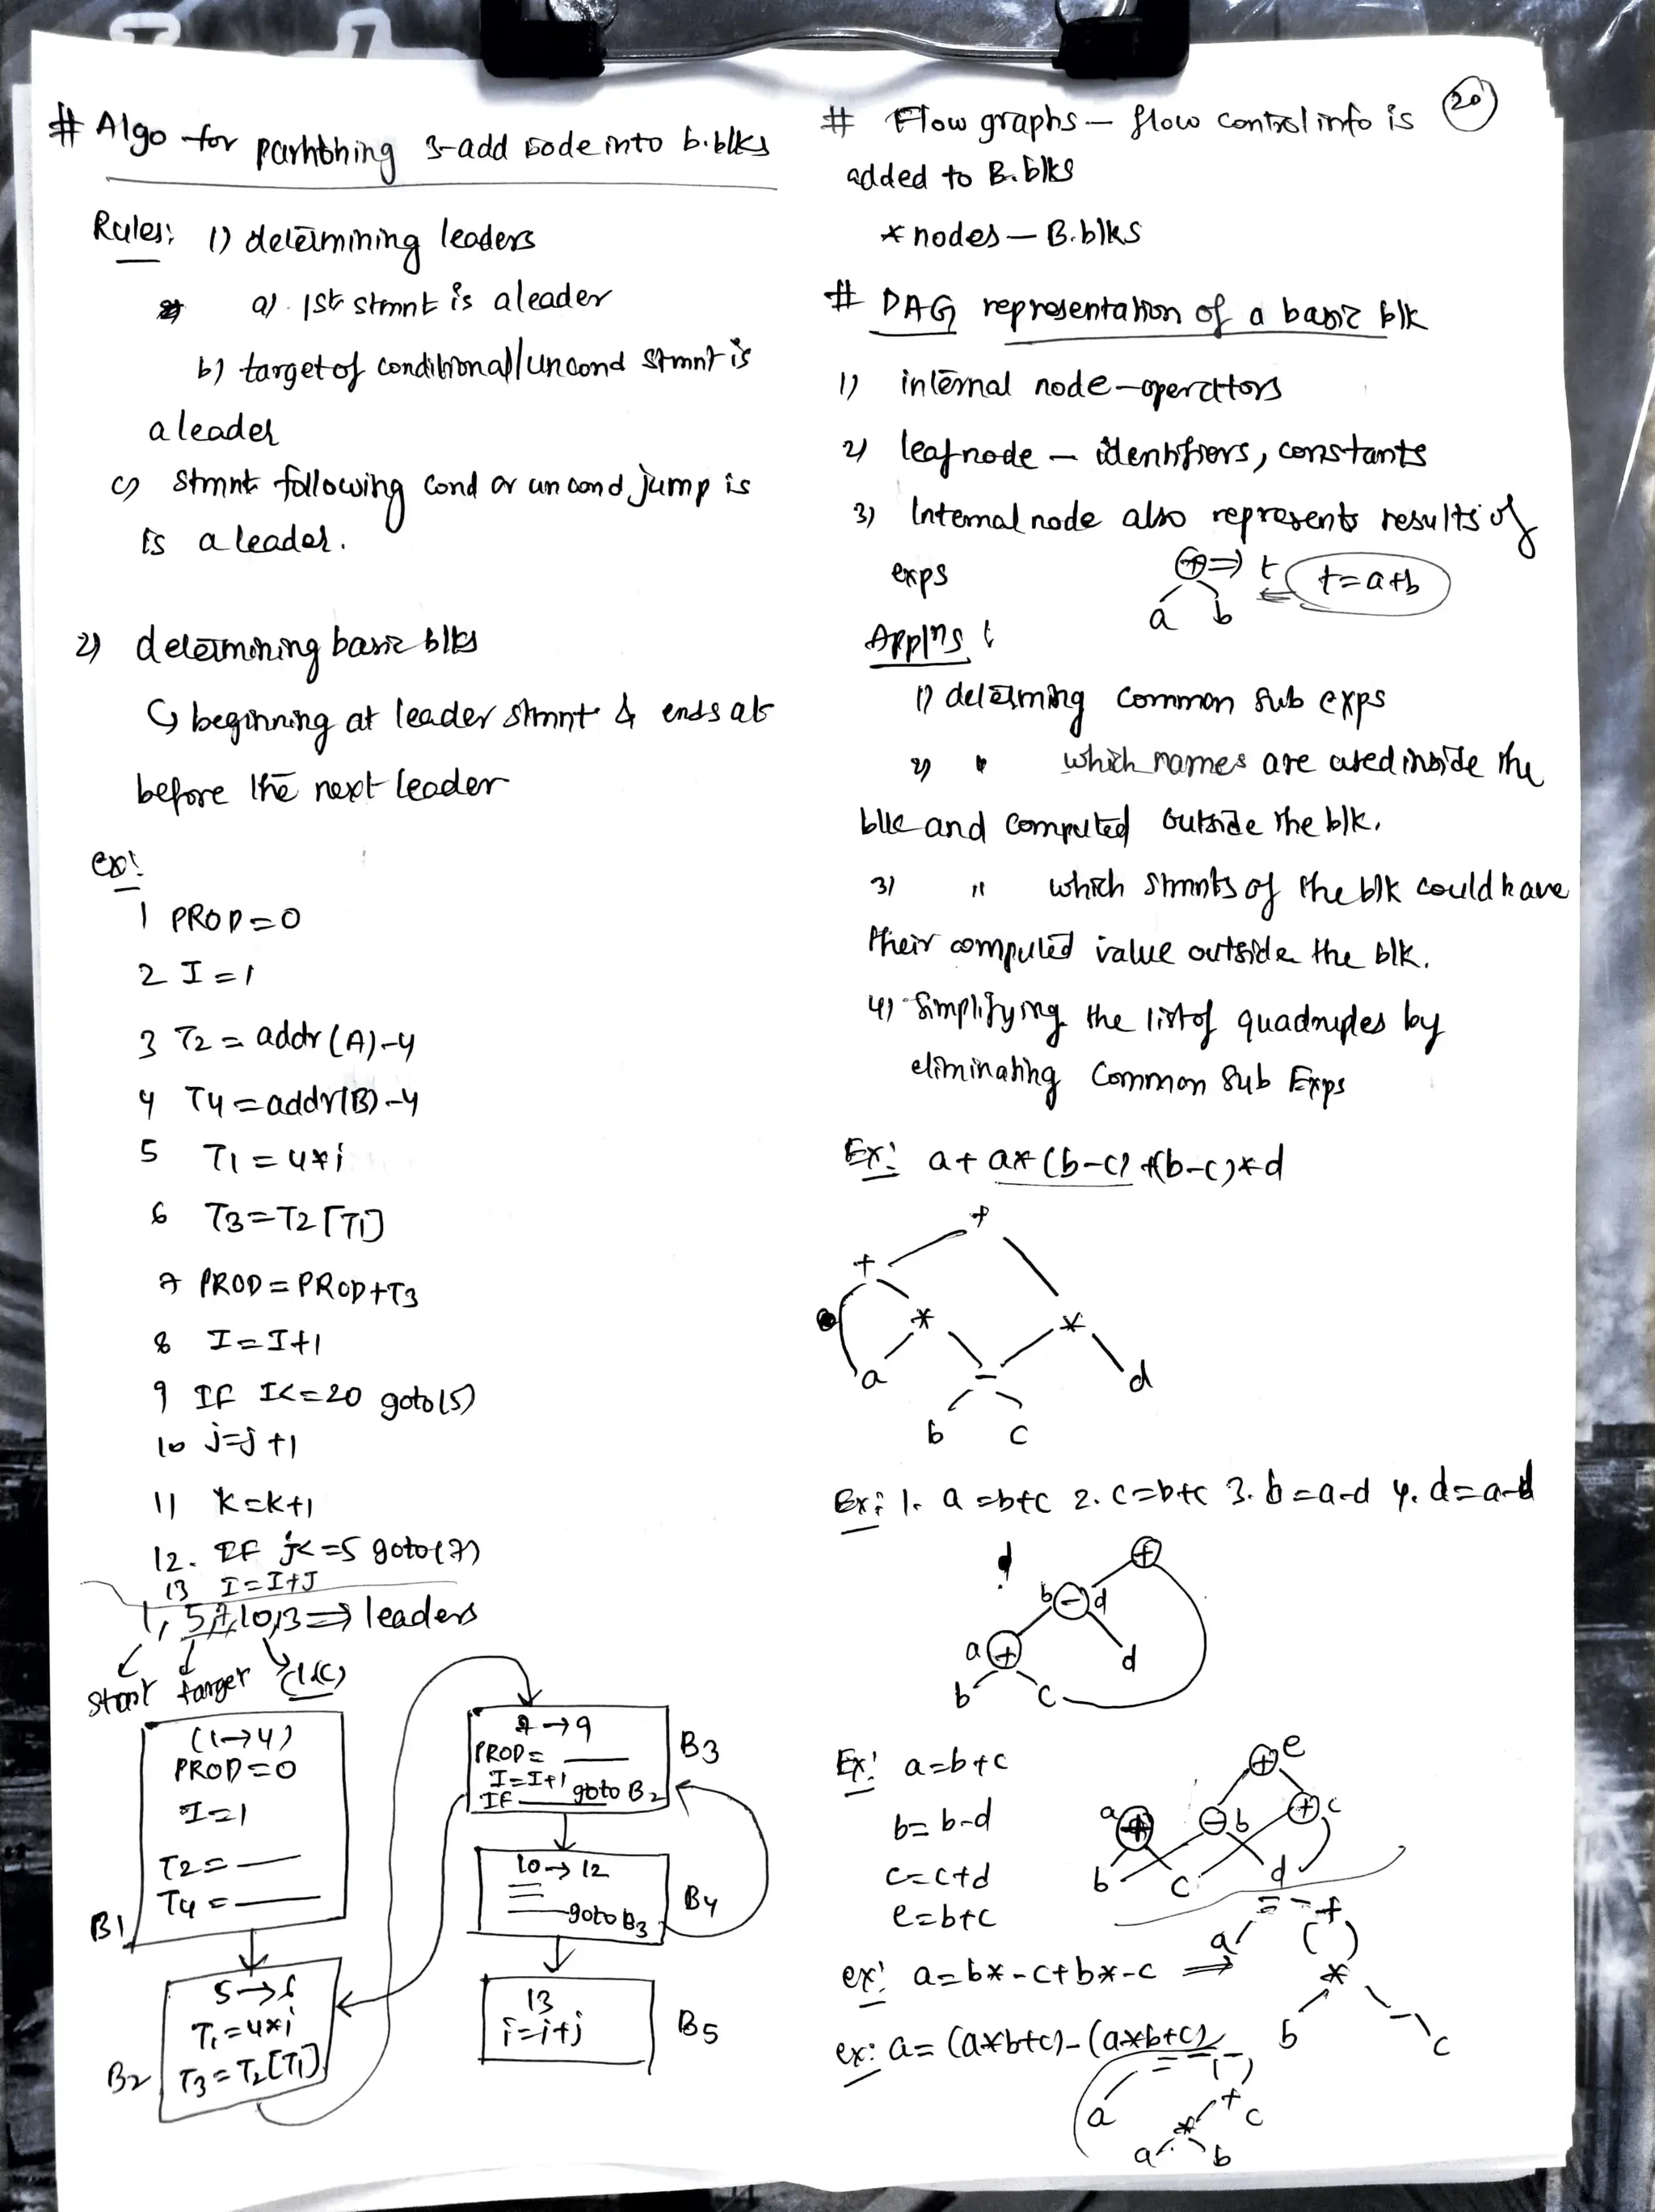 # Algo for partitioning 3-add code into b.blks
Rules: 1) determining leaders
a) 1st stmnt is a leader
b) target of conditional/uncond stmnt is
a leader
c) stmnt following cond or uncond jump is
is a leader.
2) determining basic blks
↳ beginning at leader stmnt & ends at
before the next leader
ex:
1 PROD=0
2 I=1
3 T2 = addr(A)-4
4 T4 = addr(B)-4
5 T1 = 4*i
6 T3=T2[T1]
7 PROD=PROD+T3
8 I=I+1
9 IF I<=20 goto(5)
10 j=j+1
11 k=k+1
12. IF j<=5 goto(7)
13 I=I+J
1, 5,7,10,13 ⇒ leaders
start target (1.(c))
(1→4)
PROD=0
I=1
T2=
T4=
B1
5→6
T1=4*i
T3=T2[T1]
B2
7→9
PROD=
I=I+1
IF goto B2
B3
10→12
goto B3
B4
13
i=i+j
B5
20
# Flow graphs – flow control info is
added to B.blks
* nodes – B.blks
# DAG representation of a basic blk
1) internal node – operators
2) leaf node – identifiers, constants
3) Internal node also represents results of
exps
+ ⇒ t t=a+b
a b
Applns:
1) determing common sub exps
2) " which names are used inside the
blk and computed outside the blk.
3) " which stmnts of the blk could have
their computed value outside the blk.
4) Simplifying the list of quadruples by
eliminating common sub Exps
Ex: a+a*(b-c)+(b-c)*d
+
+
* *
a - d
b c
Ex: 1. a=b+c 2. c=b+c 3. b=a-d 4. d=a-d
+
b - d
a + d
b c
Ex: a=b+c
b=b-d
c=c+d
e=b+c
+ e
a + - b + c
b c d
ex: a=b*-c+b*-c ⇒
=
a +
( )
*
b -
c
ex: a=(a*b+c)-(a*b+c)
= -
a ( )
+
* c
a b